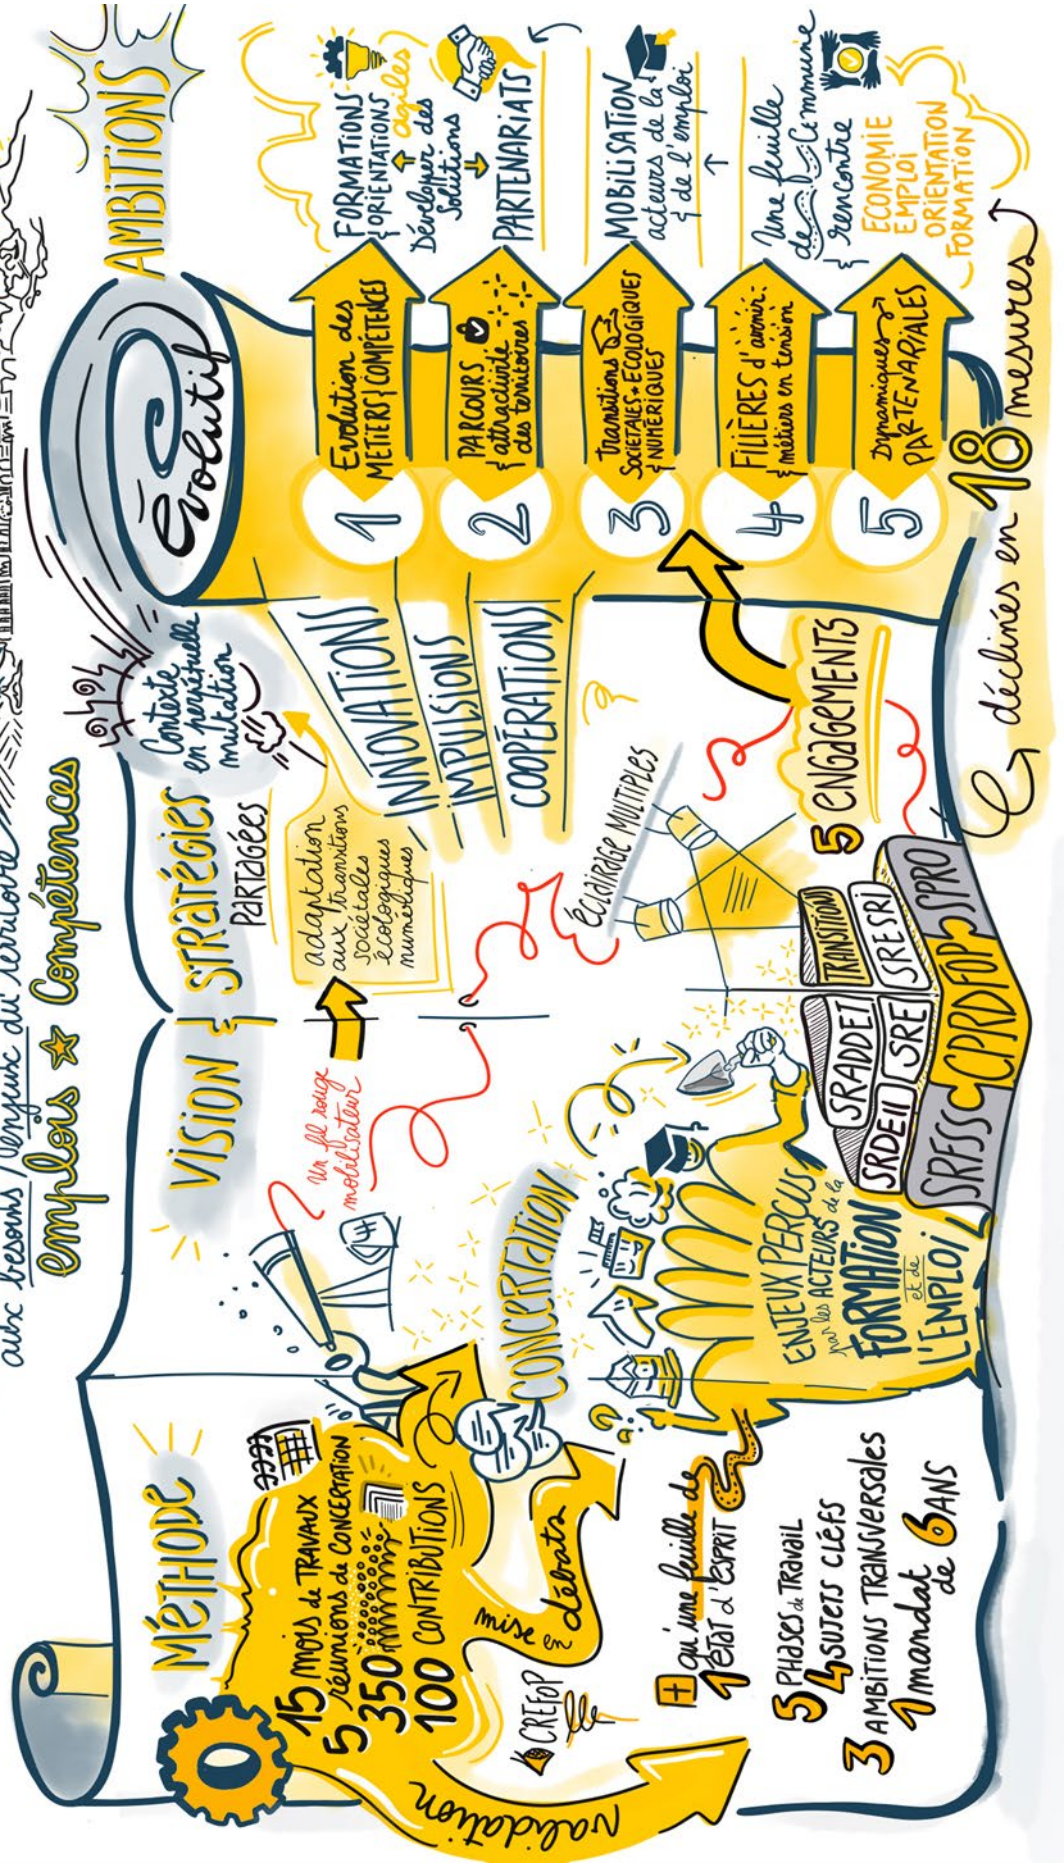 aux besoins / enjeux du territoire
emplois ★ Compétences
MÉTHODE
15 mois de TRAVAUX
5 réunions de CONCERTATION
350
100 CONTRIBUTIONS
mise en débats
CREFOP
validation
+ qu'une feuille de
1 état d'ESPRIT
5 PHASES de TRAVAIL
4 SUJETS CLÉFS
3 AMBITIONS TRANSVERSALES
1 mandat de 6 ANS
VISION & STRATÉGIES
PARTAGÉES
Un fil rouge
mobilisateur
adaptation
aux transitions
sociétales
écologiques
numériques
Contexte
en perpétuelle
mutation
CONCERTATION
ENJEUX PERÇUS
par les ACTEURS de la
FORMATION
et de
L'EMPLOI
INNOVATIONS
IMPULSIONS
COOPÉRATIONS
ÉCLAIRAGE MULTIPLES
SRADDET
TRANSITIONS
SRDEII
SRE
SRESRI
SRFSS
CPRDFOP
SPRO
5 ENGAGEMENTS
Évolutif
1
Evolution des
METIERS & COMPÉTENCES
2
PARCOURS
& attractivité
des territoires
3
Transitions
SOCIÉTALES * ECOLOGIQUES
& NUMÉRIQUES
4
FILIÈRES d'avenir :
& métiers en tension
5
Dynamiques
PARTENARIALES
déclinés en 18 mesures
AMBITIONS
FORMATIONS
& ORIENTATIONS
agiles
Développer des
Solutions
PARTENARIATS
MOBILISATION
acteurs de la
& de l'emploi
Une feuille
de Commune
& rencontre
ECONOMIE
EMPLOI
ORIENTATION
FORMATION